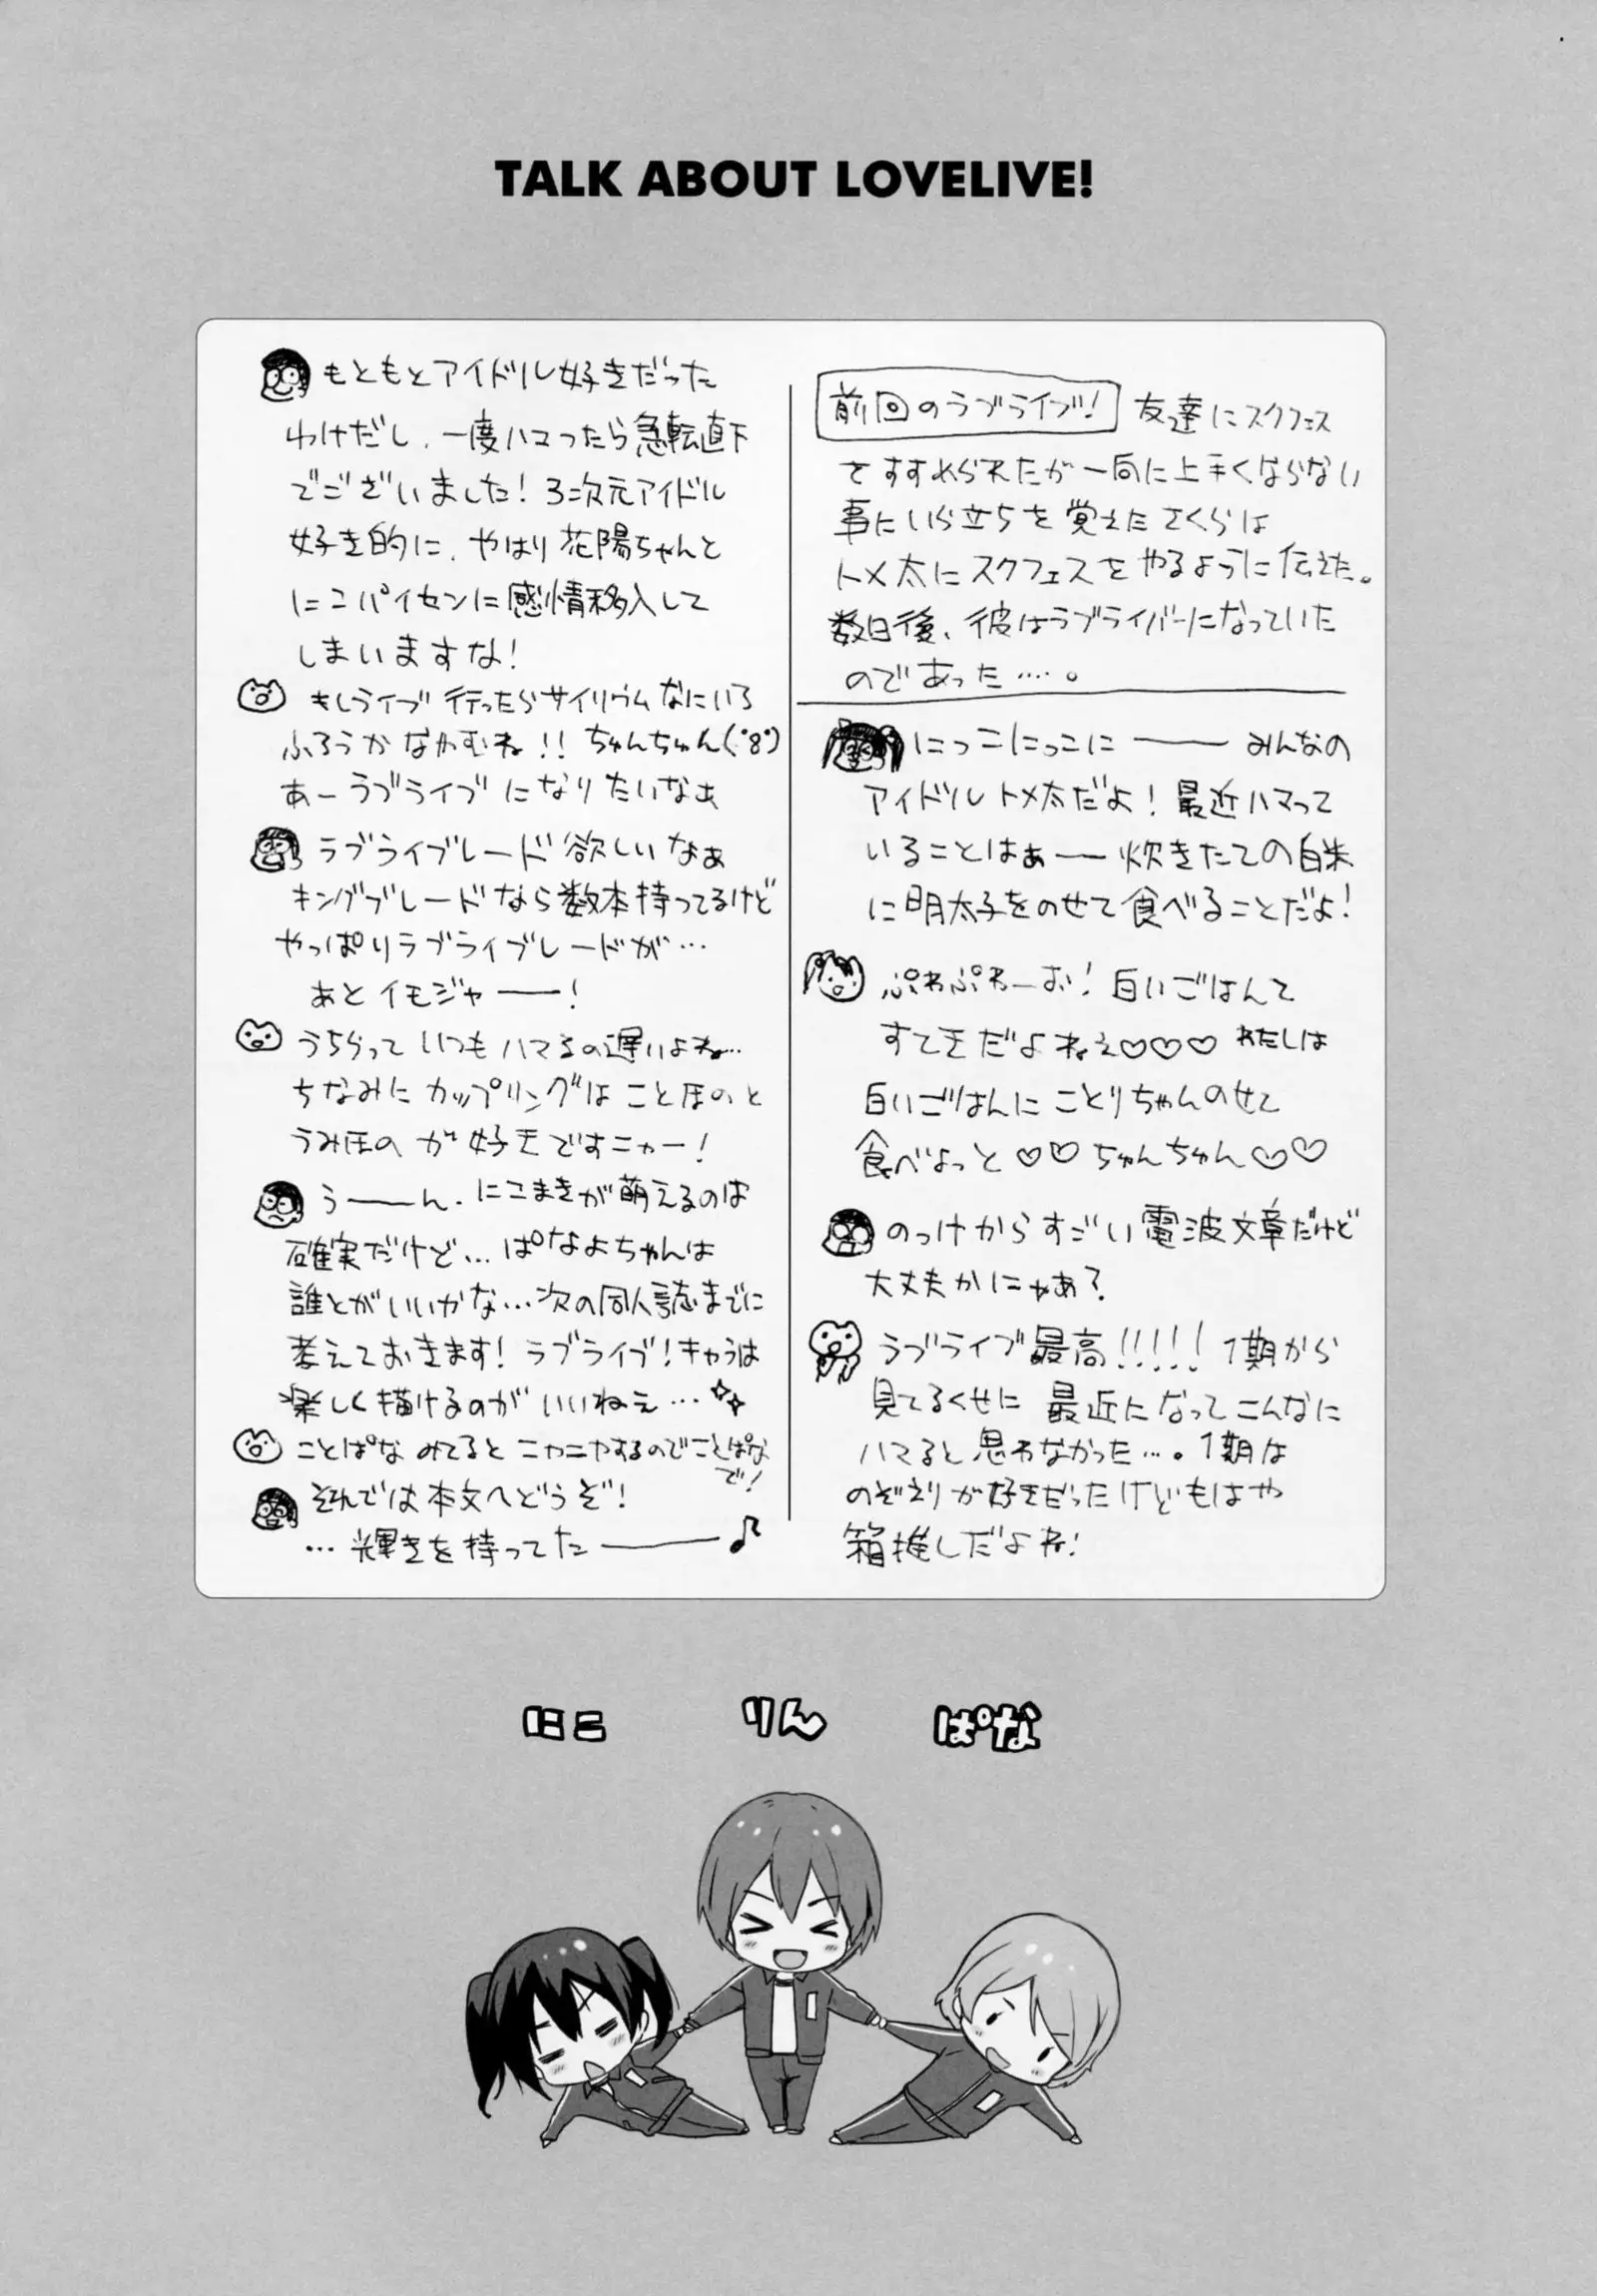 TALK ABOUT LOVELIVE!
前回のラブライブ! 友達にスクフェス
をすすめられたが一向に上手くならない
事にいら立ちを覚えたさくらは
トメ太にスクフェスをやるように伝えた。
数日後、彼はラブライバーになっていた
のであった……。
にっこにっこに―― みんなの
アイドルトメ太だよ! 最近ハマって
いることはぁ―― 炊きたての白米
に明太子をのせて食べることだよ!
ぷわぷわーお! 白いごはんて
すてきだよねえ♡♡♡ わたしは
白いごはんにことりちゃんのせて
食べよっと♡♡ ちゅんちゅん♡♡
のっけからすごい電波文章だけど
大丈夫かにゃあ?
ラブライブ最高!!!!! 1期から
見てるくせに 最近になってこんなに
ハマると思わなかった…。1期は
のぞえりが好きだったけどもはや
箱推しだよね!
もともとアイドル好きだった
わけだし、一度ハマったら急転直下
でございました! 3次元アイドル
好き的に、やはり花陽ちゃんと
にこパイセンに感情移入して
しまいますな!
もしライブ行ったらサイリウムなにいろ
ふろうかなやむね!! ちゅんちゅん(・8・)
あーラブライブになりたいなぁ
ラブライブレード欲しいなぁ
キングブレードなら数本持ってるけど
やっぱりラブライブレードが…
あとイモジャ――!
うちらっていつもハマるの遅いよね…
ちなみにカップリングはことほのと
うみほのが好きですニャー!
う――ん、にこまきが萌えるのは
確実だけど…ぱなよちゃんは
誰とがいいかな…次の同人誌までに
考えておきます! ラブライブ!キャラは
楽しく描けるのがいいねえ…
ことぱなみてるとニヤニヤするのでことぱな
で!
それでは本文へどうぞ!
…輝きを持ってた――♪
にこ りん ぱな